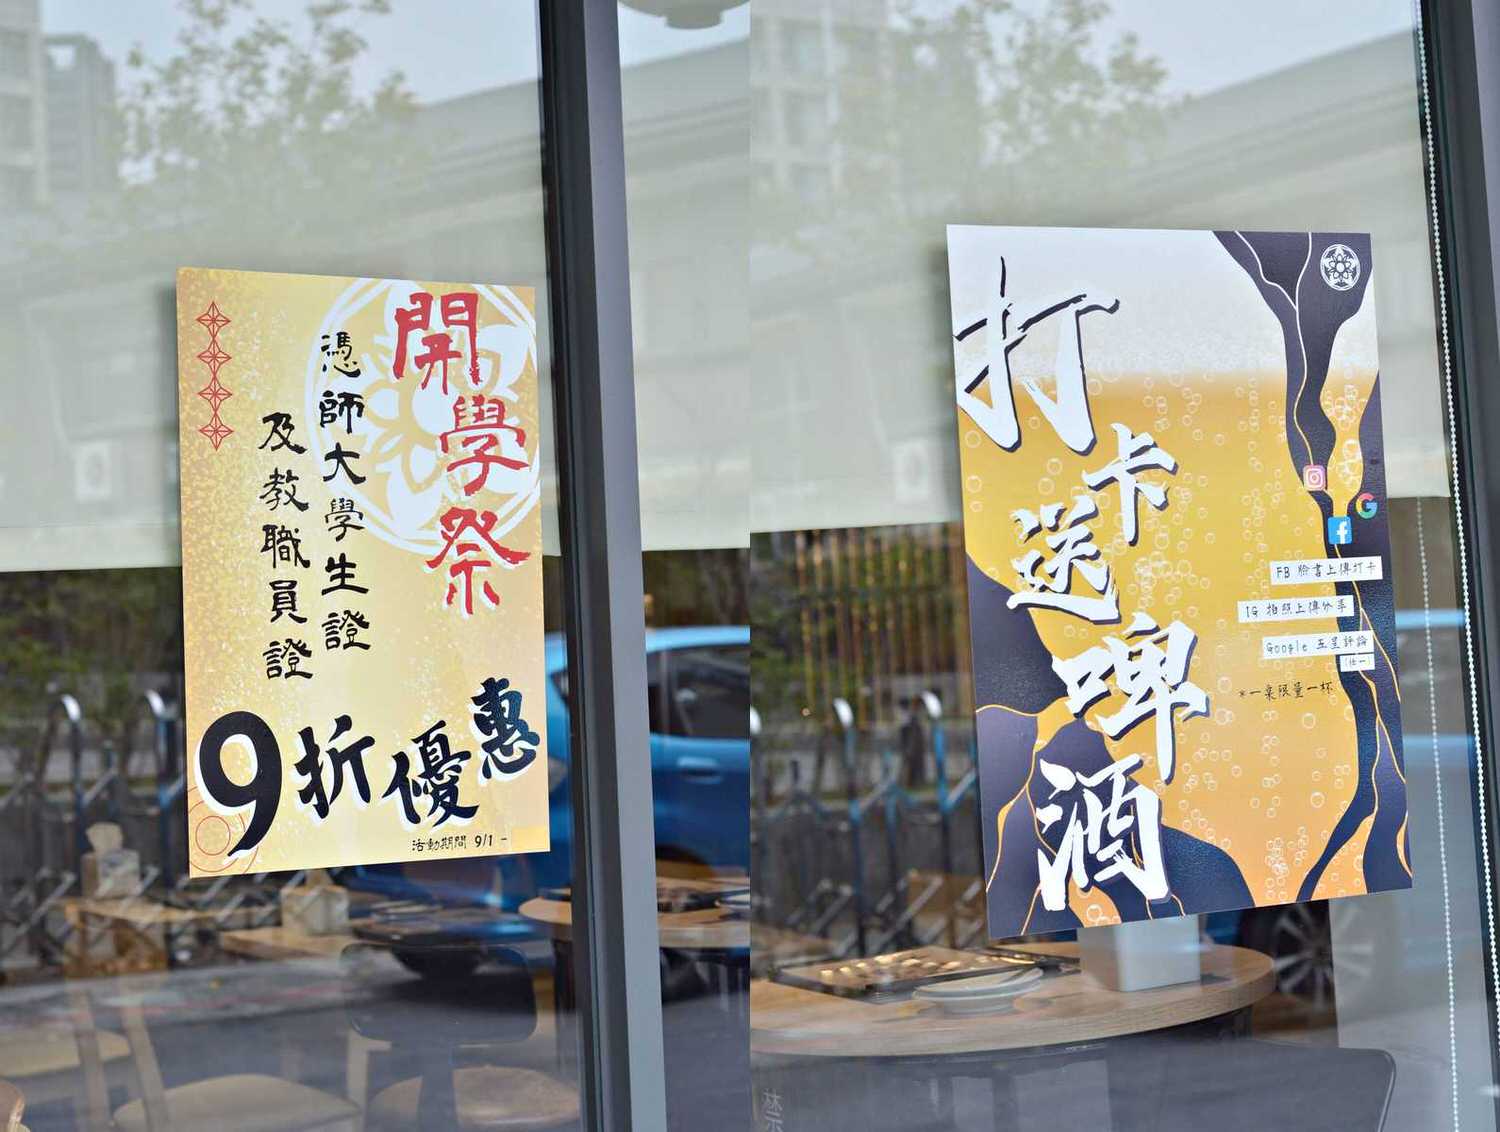 開學祭
憑師大學生證
及教職員證
9折優惠
活動期間 9/1 -
打卡送啤酒
FB 臉書上傳打卡
IG 拍照上傳分享
Google 五星評論
(任一)
*一桌限量一杯